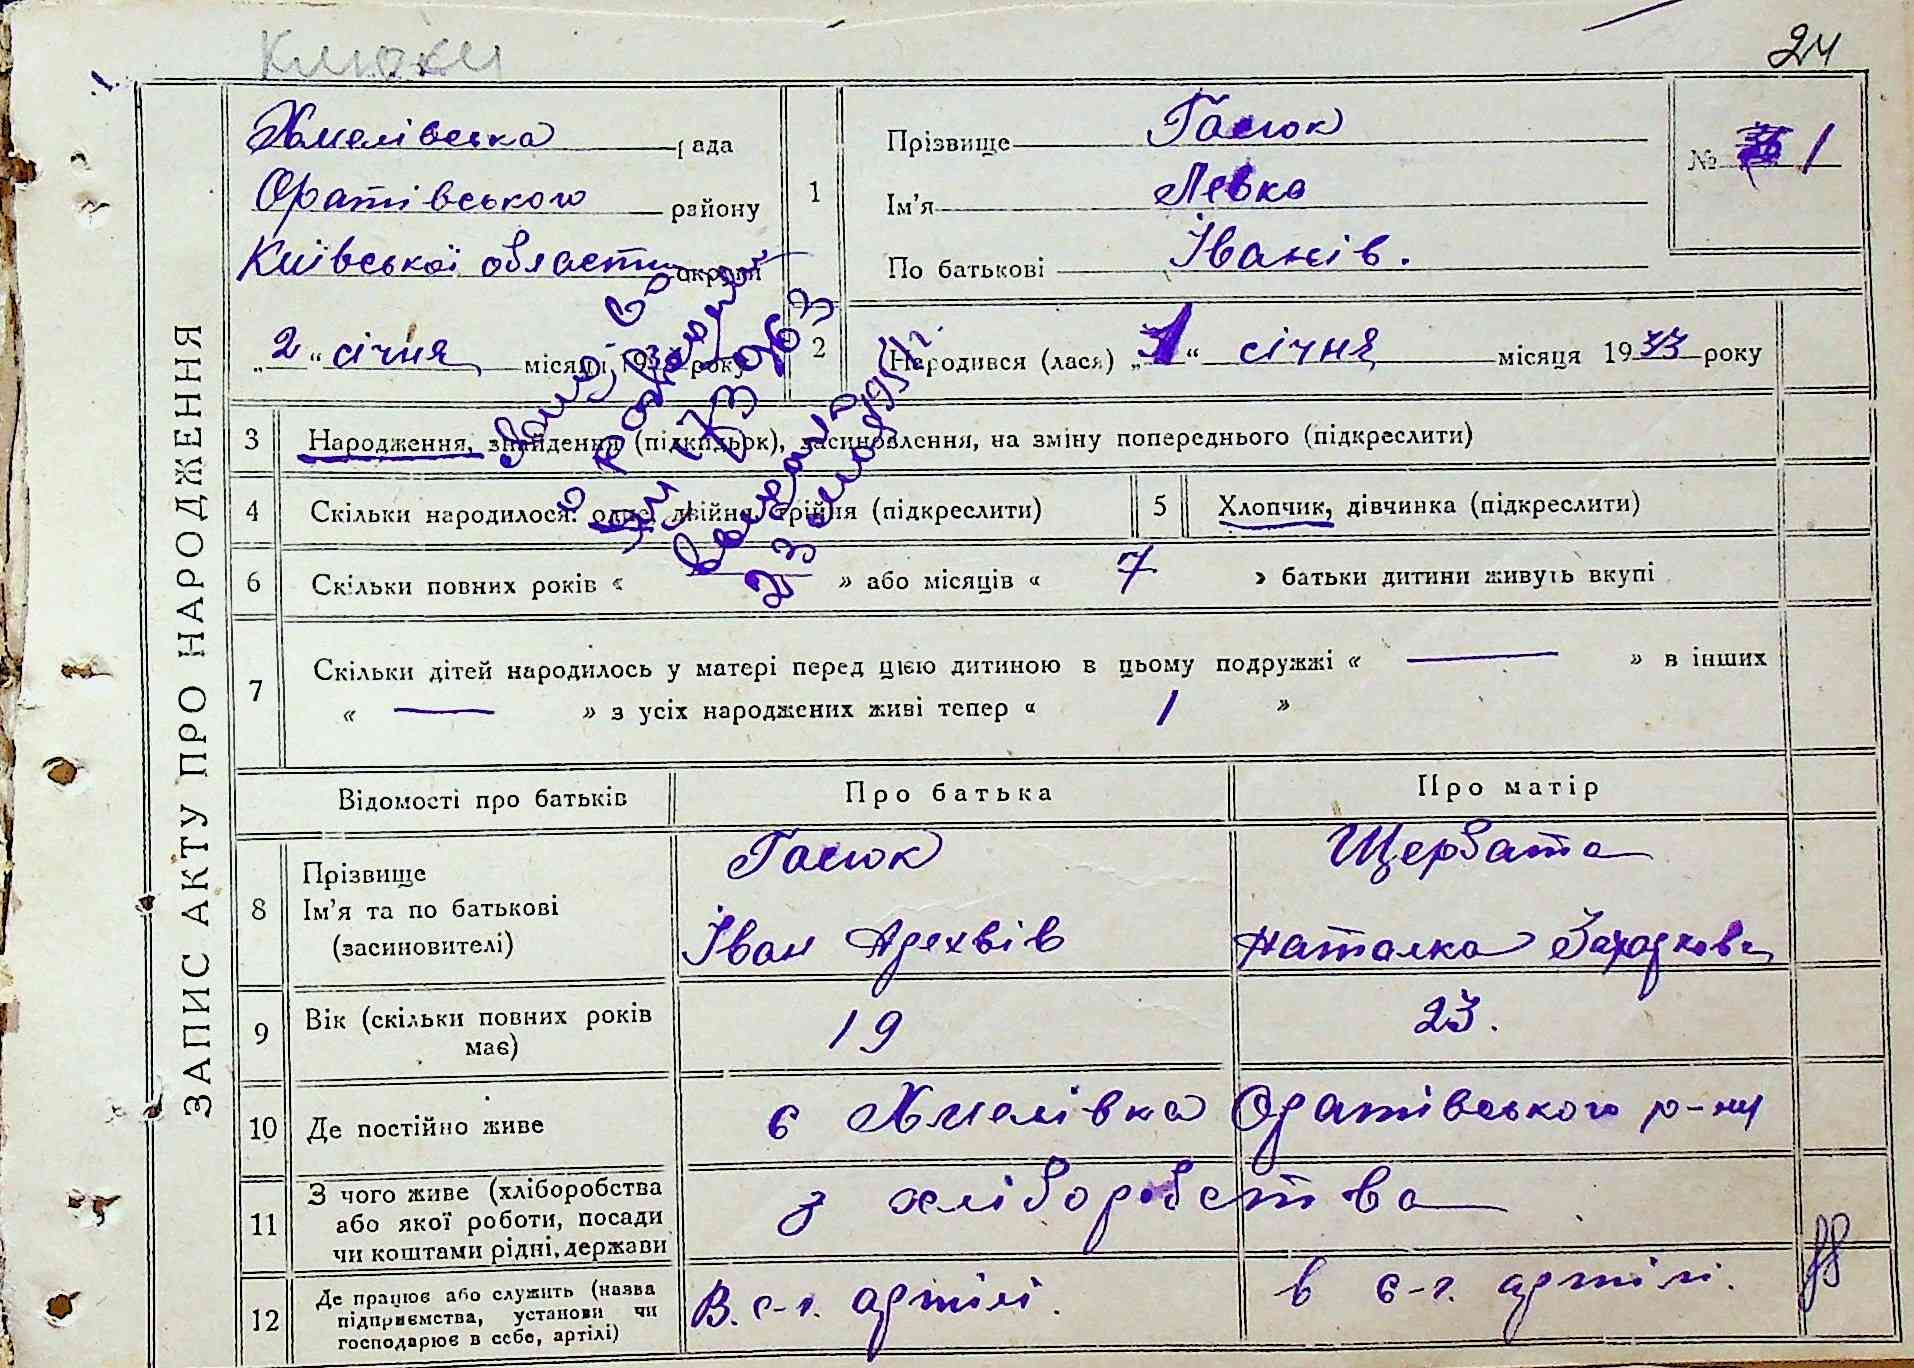 Клюки
24
ЗАПИС АКТУ ПРО НАРОДЖЕННЯ
Хмелівська рада
Оратівського району
Київської области округи
„2“ січня місяця 1933 року
1
Прізвище Гасюк
Ім'я Левко
По батькові Іванів.
№ 1
2
Народився (лася) „1“ січня місяця 1933 року
3 Народження, знайдення (підкидьок), засиновлення, на зміну попереднього (підкреслити)
4 Скільки народилося: одне, двійня, трійня (підкреслити)
5 Хлопчик, дівчинка (підкреслити)
6 Скільки повних років « » або місяців « 7 » батьки дитини живуть вкупі
7 Скільки дітей народилось у матері перед цією дитиною в цьому подружжі « — » в інших
« — » з усіх народжених живі тепер « 1 »
Відомості про батьків Про батька Про матір
8 Прізвище
Ім'я та по батькові
(засиновителі)
Гасюк
Іван
Щербата
Наталка
9 Вік (скільки повних років
має)
19 23.
10 Де постійно живе
с Хмелівка Оратівського р-ну
11 З чого живе (хліборобства
або якої роботи, посади
чи коштами рідні, держави
з хліборобства
12 Де працює або служить (назва
підприємства, установи чи
господарює в себе, артілі)
В. с-г. артілі. в с-г. артілі.